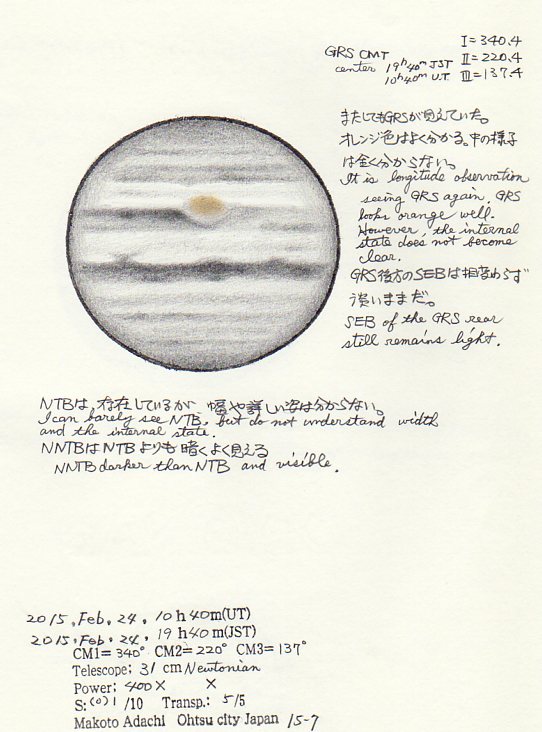 I=340.4
GRS CMT II=220.4
center 19h40m JST
10h40m U.T. III=137.4
またしてもGRSが見えていた。
オレンジ色はよく分かる。中の様子
は全く分からない。
It is longitude observation
seeing GRS again. GRS
looks orange well.
However, the internal
state does not become
clear.
GRS後方のSEBは相変わらず
淡いままだ。
SEB of the GRS rear
still remains light.
NTBは、存在しているが 幅や詳しい姿は分からない。
I can barely see NTB, but do not understand width
and the internal state.
NNTBはNTBよりも暗くよく見える
NNTB darker than NTB and visible.
2015, Feb, 24, 10h40m(UT)
2015, Feb, 24, 19h40m(JST)
CM1=340° CM2=220° CM3=137°
Telescope; 31 cm Newtonian
Power; 400× ×
S:(0)1/10 Transp.: 5/5
Makoto Adachi Ohtsu city Japan 15-7